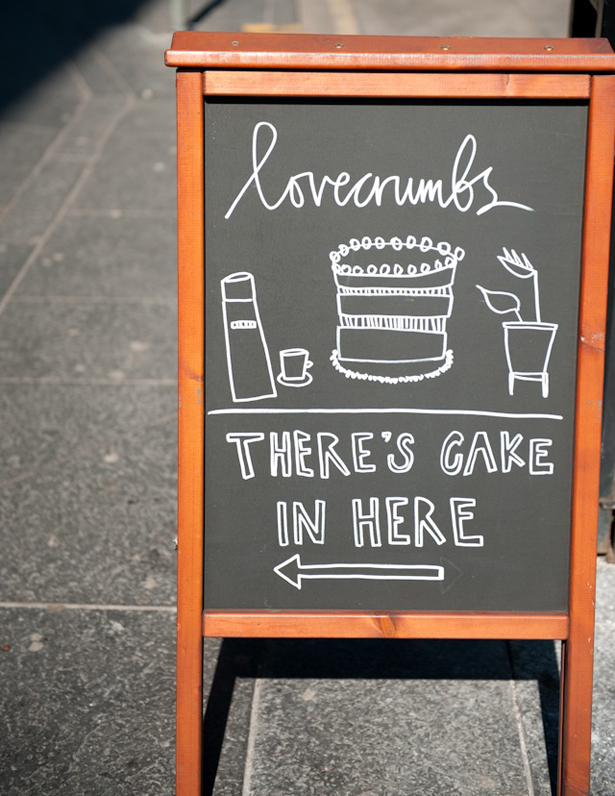 lovecrumbs
THERE'S CAKE
IN HERE